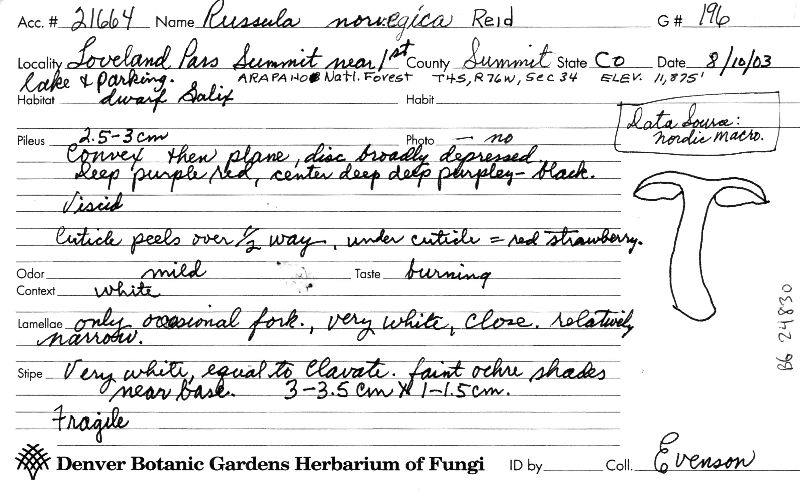 Acc. # 21664 Name Russula norvegica Reid G# 196
Locality Loveland Pass Summit near 1st County Summit State CO Date 8/10/03
lake & parking. ARAPAHOE Natl. Forest T4S, R76W, Sec 34 ELEV. 11,875'
Habitat dwarf Salix Habit
Data Source:
Nordic Macro.
Pileus 2.5-3cm Photo - no
Convex then plane, disc broadly depressed
Deep purple red, center deep deep purpley-black.
Viscid
Cuticle peels over 1/2 way, under cuticle = red strawberry.
Odor mild Taste burning
Context white
Lamellae only occasional fork., very white, close. relatively
narrow.
Stipe Very white, equal to clavate. faint ochre shades
near base. 3-3.5 cm X 1-1.5cm.
Fragile
Denver Botanic Gardens Herbarium of Fungi ID by Coll. Evenson
BG 24830